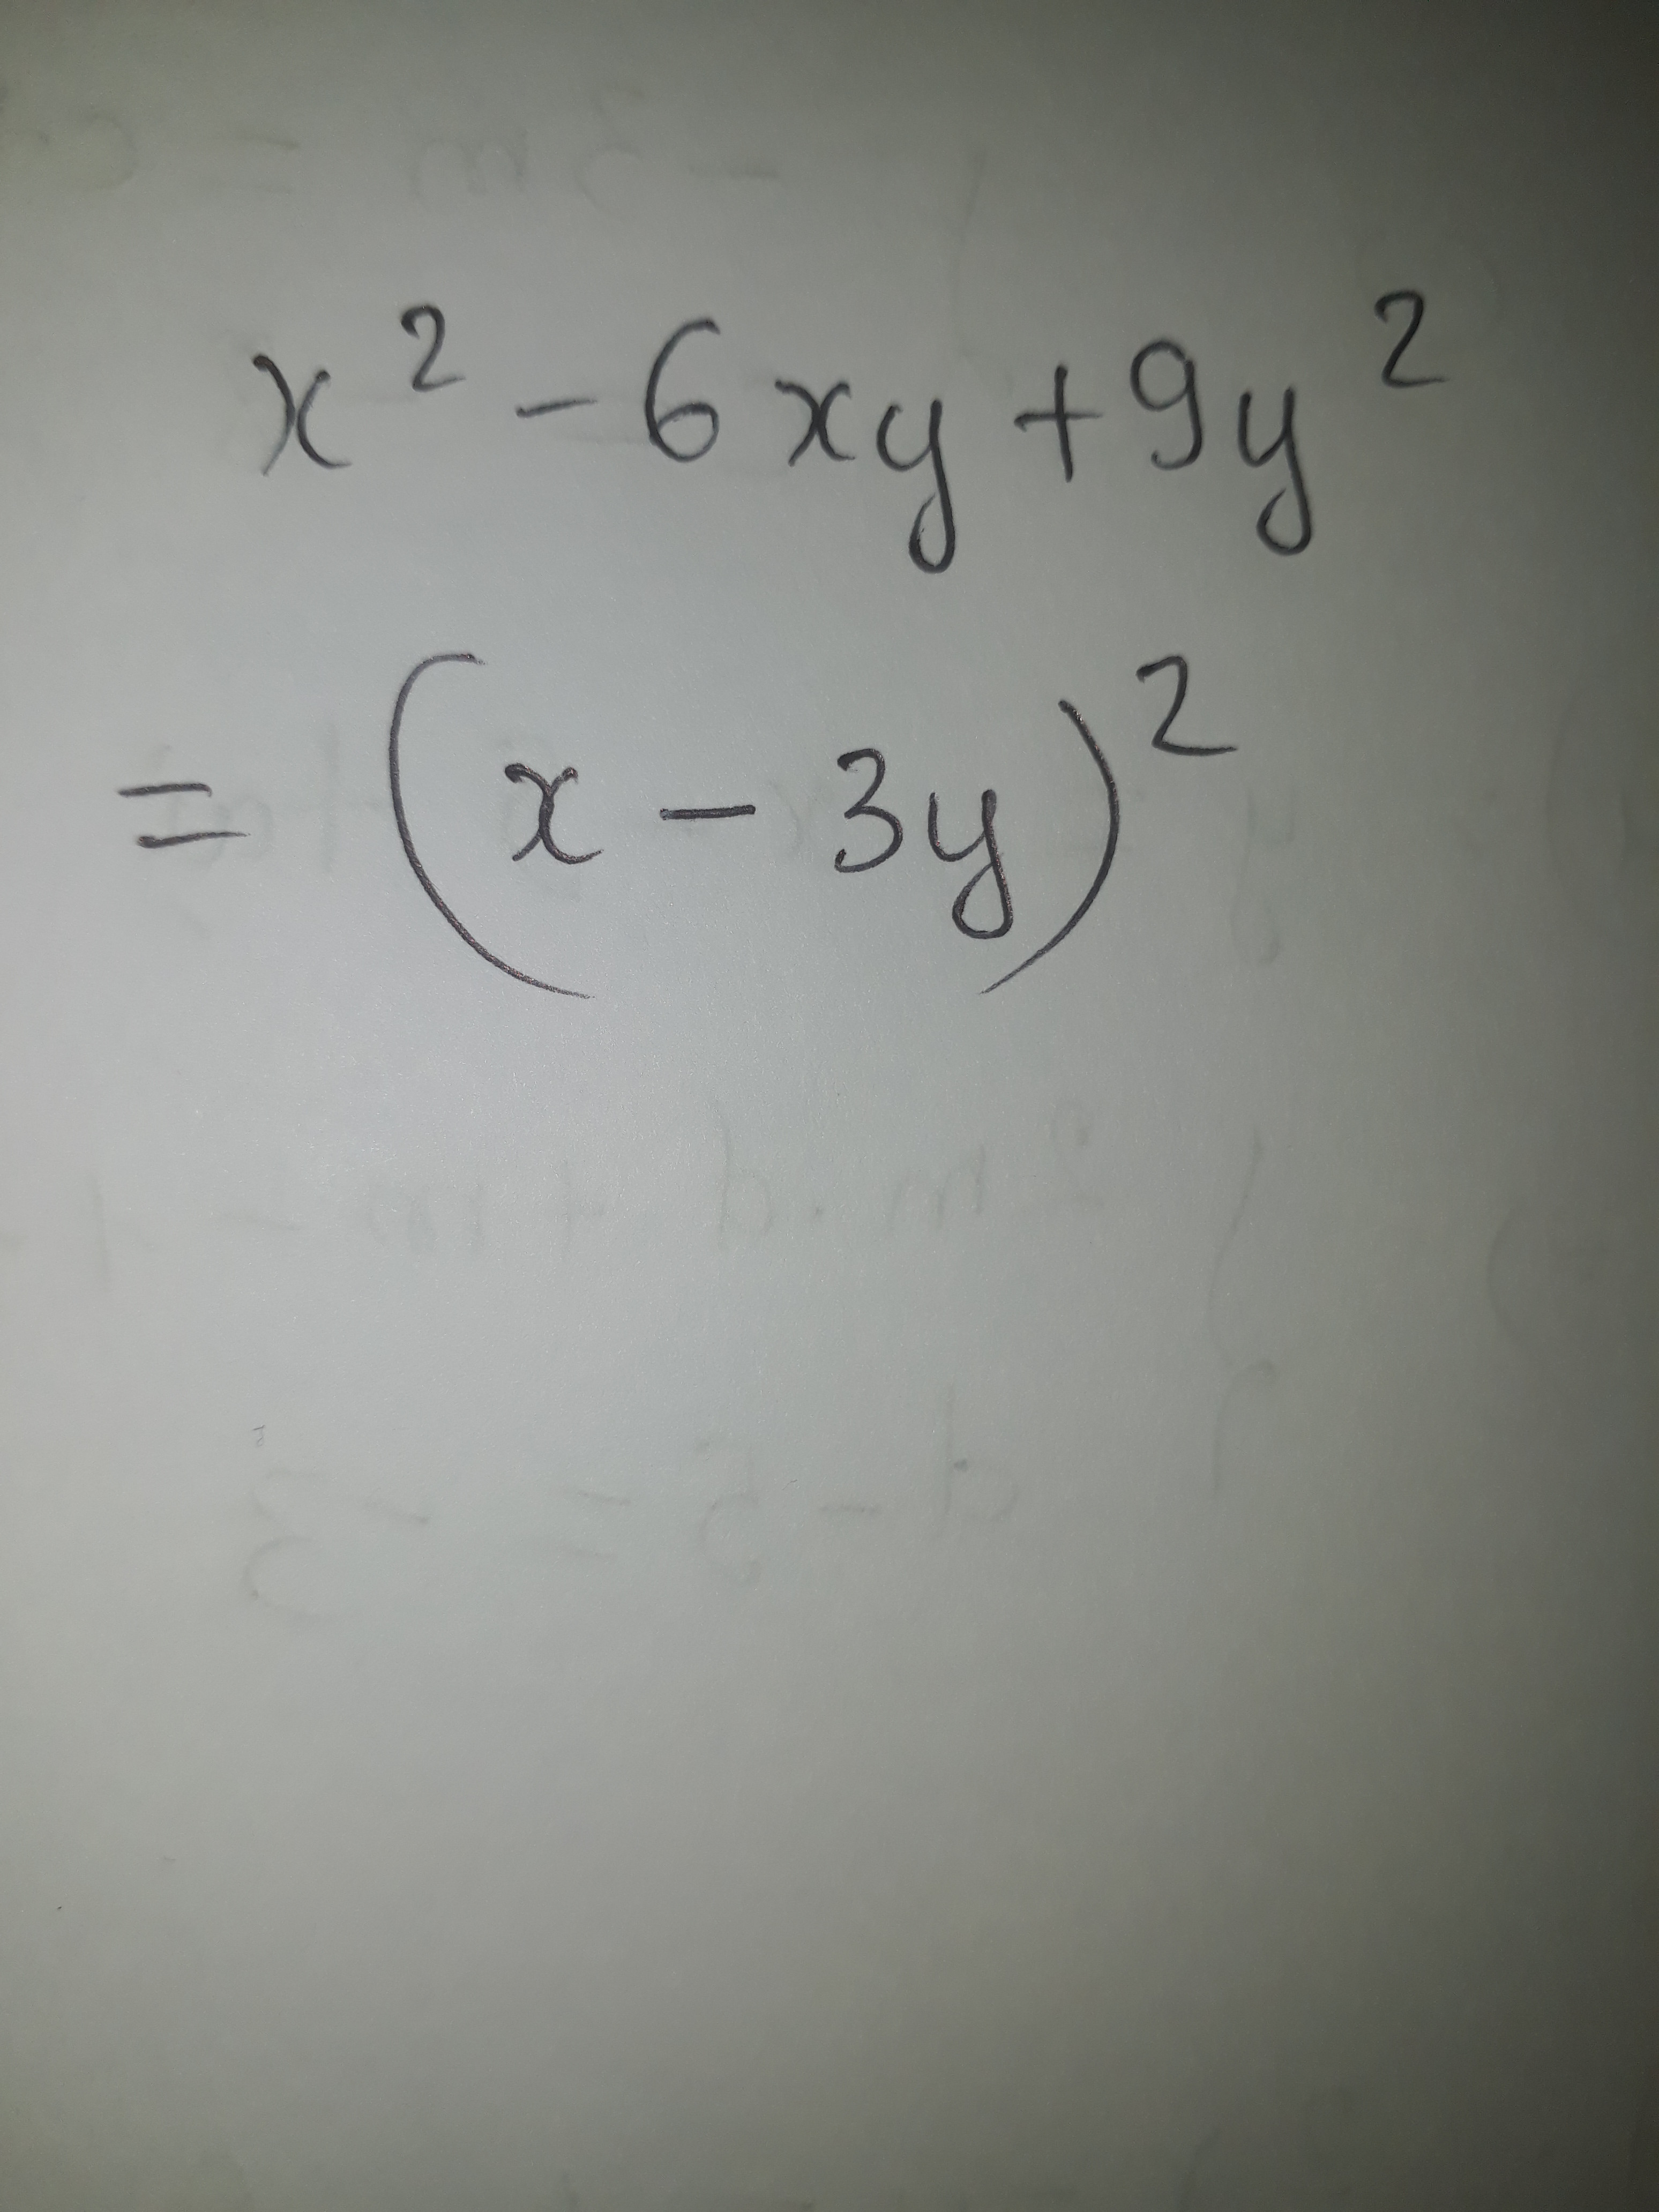 x² - 6xy + 9y²
= (x - 3y)²